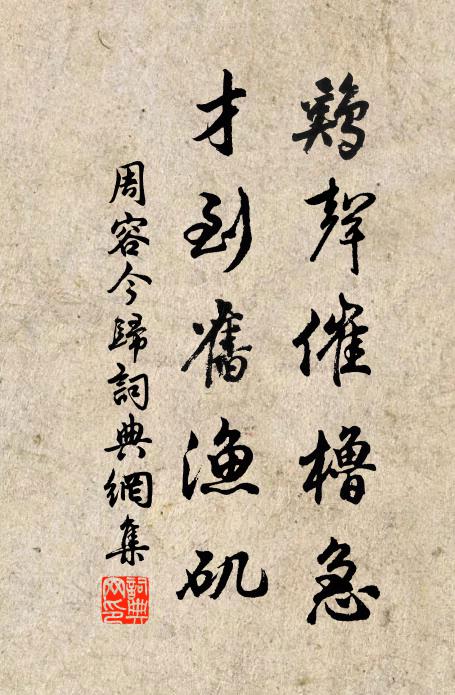 鷄聲催櫓急
才到舊漁矶
周容今歸詞典網集
詞典
网印